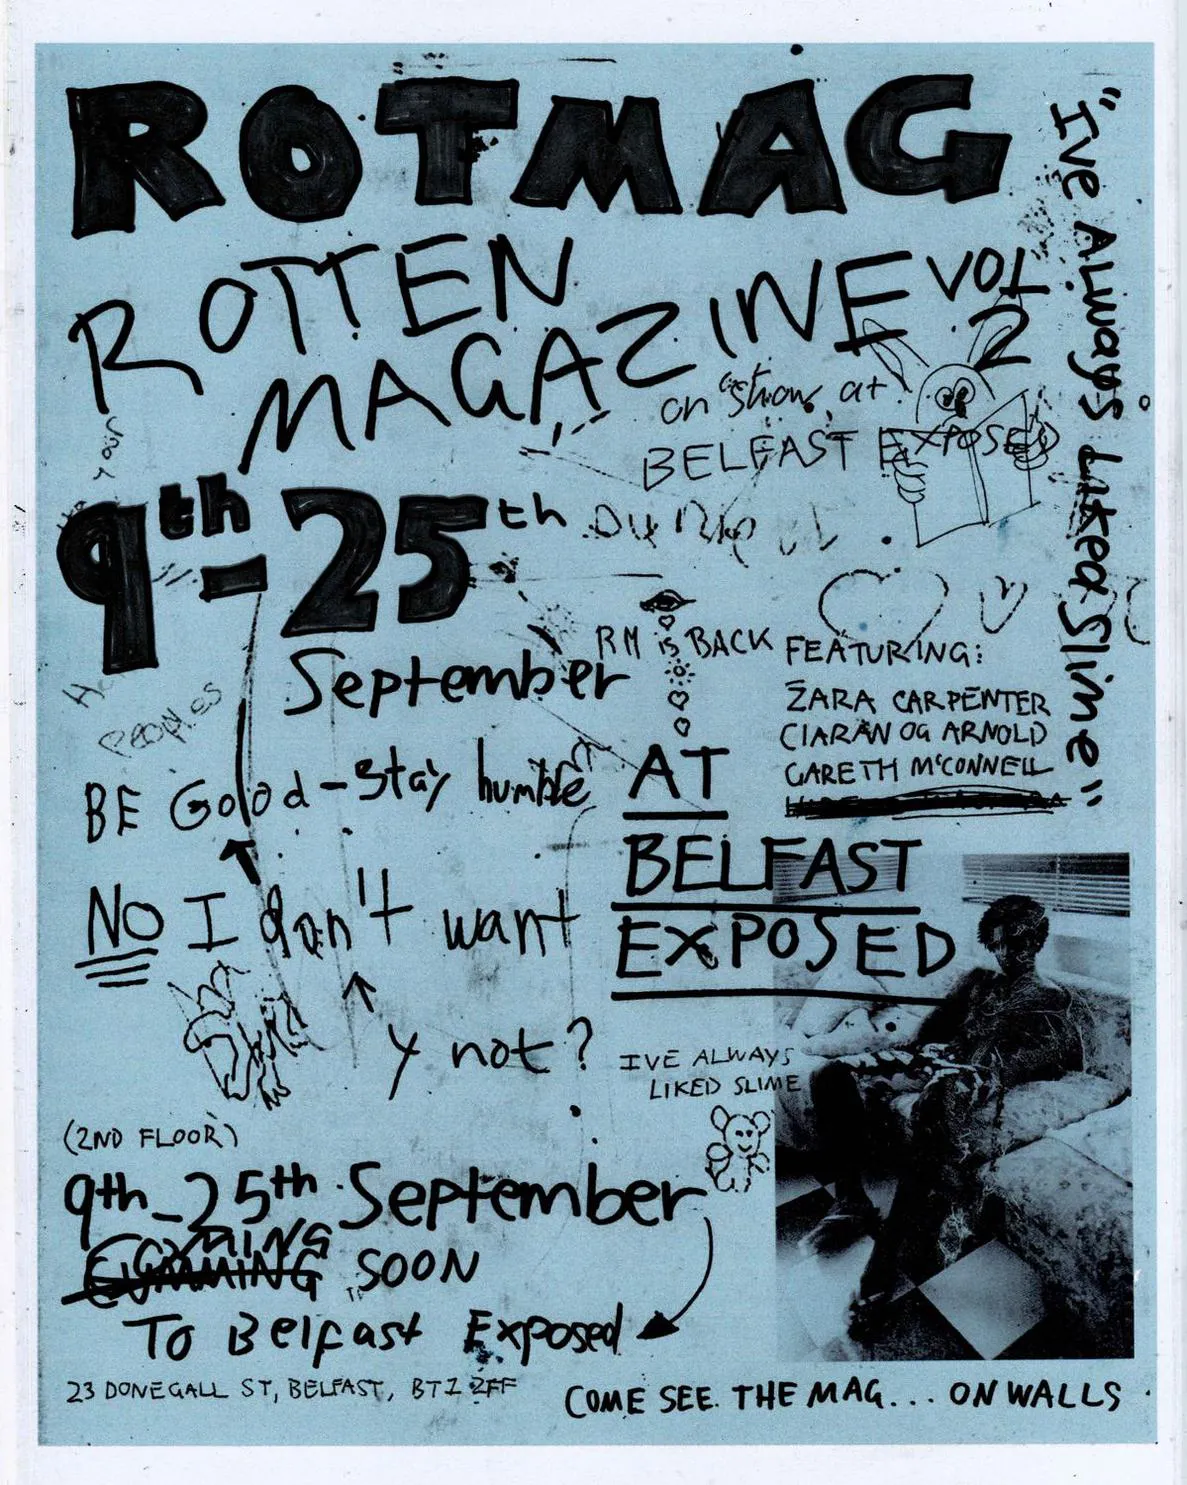 ROTMAG
ROTTEN
MAGAZINE VOL
2
"I've ALways Liked Slime"
on show at
BELFAST EXPOSED
9th-25th
September
RM is BACK
FEATURING:
ZARA CARPENTER
CIARÁN ÓG ARNOLD
GARETH McCONNELL
PEOPLES
BE Good-Stay humble
AT
BELFAST
EXPOSED
NO I don't want
y not?
IVE ALWAYS
LIKED SLIME
(2ND FLOOR)
9th-25th September
COMING
SOON
To Belfast Exposed
23 DONEGALL ST, BELFAST, BT1 2FF
COME SEE THE MAG... ON WALLS